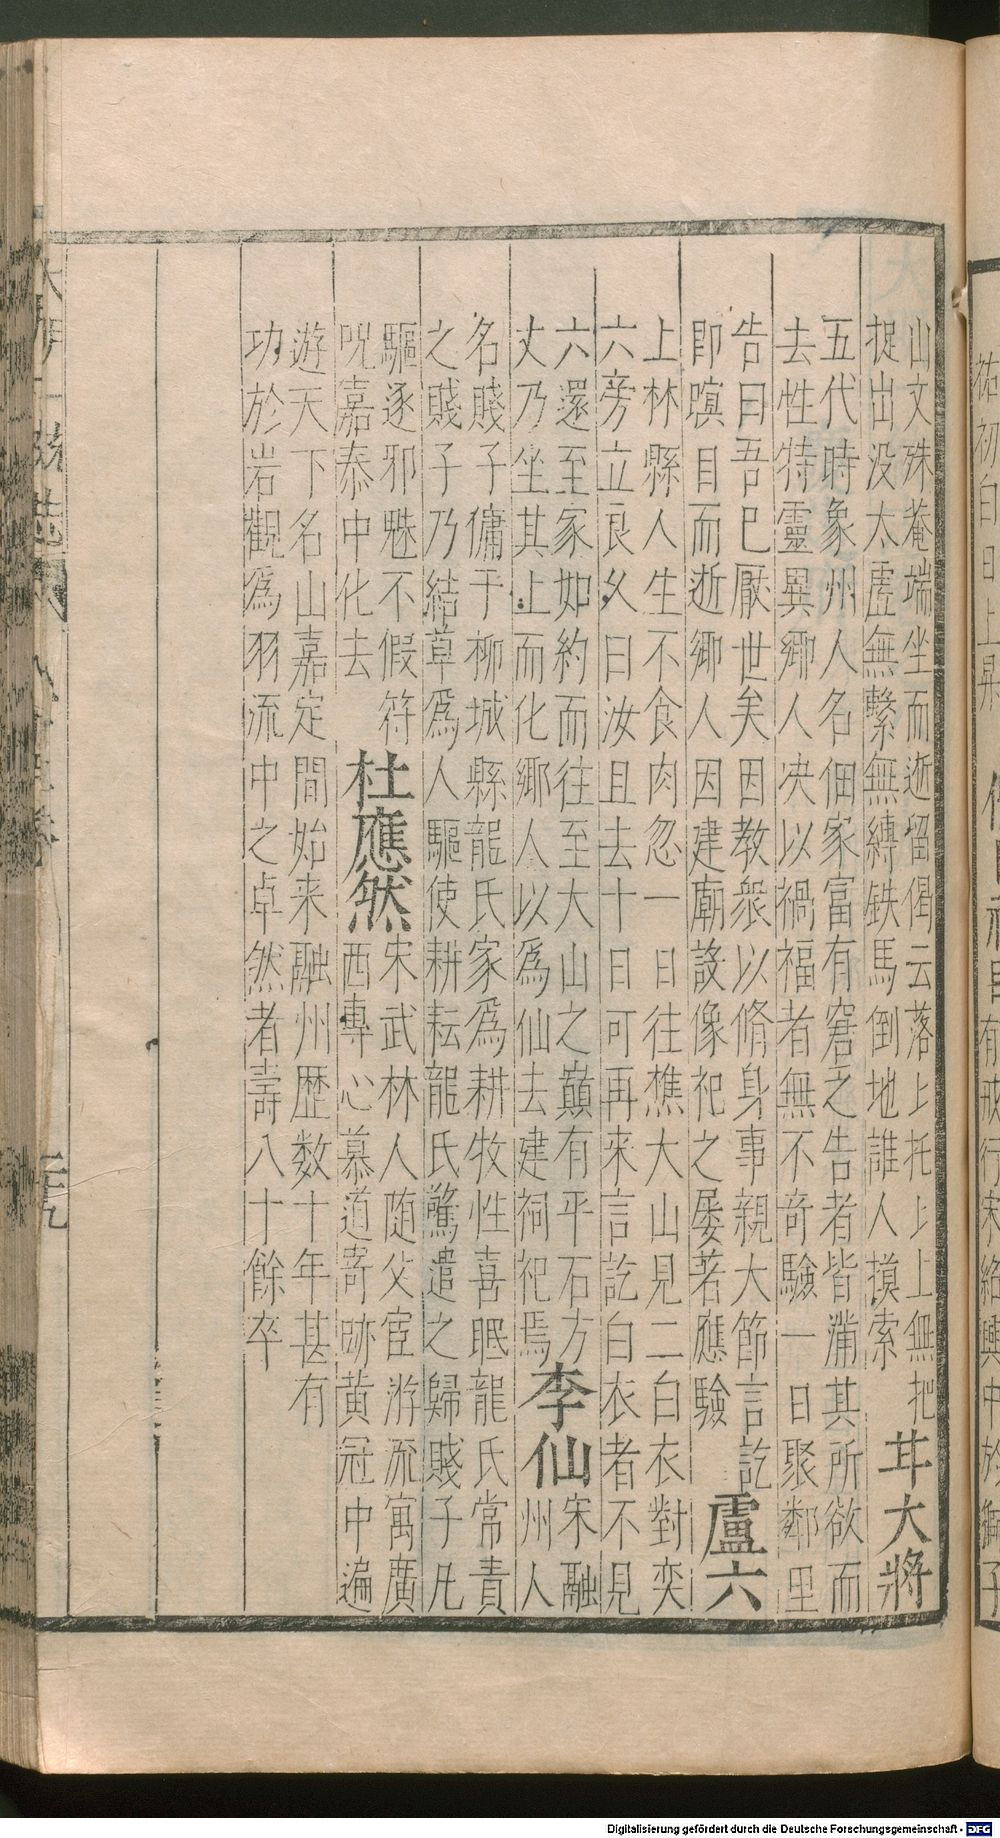 山文殊菴端坐而逝留偈云落上托上上無把
捉出没太虛無繫無縛鉄馬倒地誰人摸索
甘大將
五代時象州人名佃家富有窘之告者皆滿其所欲而
去性特靈異鄉人决以禍福者無不奇驗一日聚鄰里
告曰吾已厭世矣因教衆以脩身事親大節言訖
即瞑目而逝鄉人因建廟設像祀之屡著應驗
盧六
上林縣人生不食肉忽一日往樵大山見二白衣對奕
六旁立良久曰汝且去十日可再来言訖白衣者不見
六還至家如約而往至大山之巔有平石方
丈乃坐其上而化鄉人以爲仙去建祠祀焉
李仙
宋融
州人
名賤子傭于柳城縣龍氏家爲耕牧性喜眠龍氏常責
之賤子乃結草爲人驅使耕耘龍氏驚遣之歸賤子凡
驅逐邪魅不假符
呪嘉泰中化去
杜應然
宋武林人随父宦游流寓廣
西專心慕道寄跡黄冠中遍
遊天下名山嘉定間始来融州歷数十年甚有
功於岩觀爲羽流中之卓然者壽八十餘卒
大明一統志
二十九
祐初白日上昇
有戒行宋紹興中於獅子
Digitalisierung gefördert durch die Deutsche Forschungsgemeinschaft - DFG